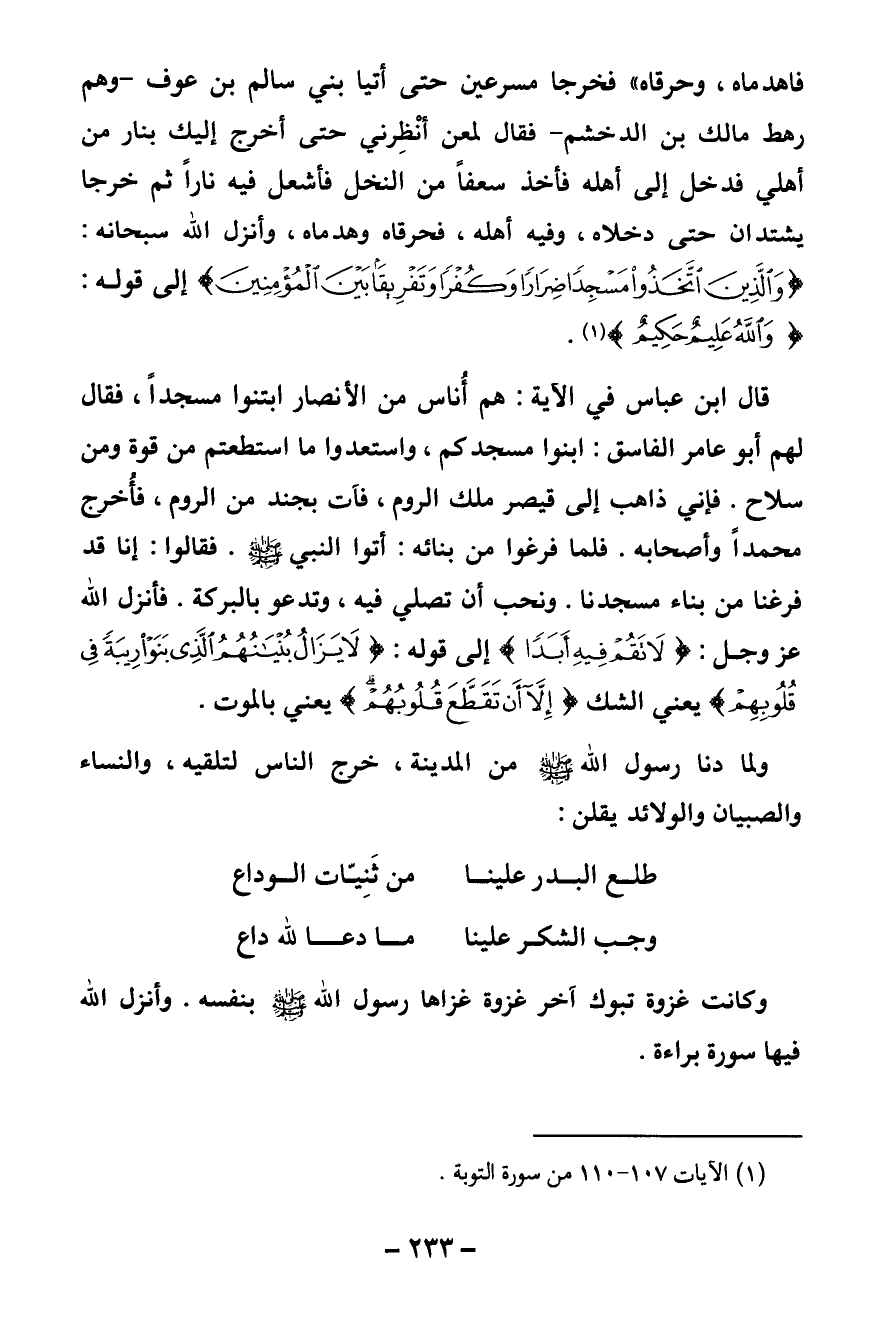 فاهدماه ، وحرقاه» فخرجا مسرعين حتى أتيا بني سالم بن عوف -وهم
رهط مالك بن الدخشم- فقال لمعن أنْظِرني حتى أخرج إليك بنار من
أهلي فدخل إلى أهله فأخذ سعفاً من النخل فأشعل فيه ناراً ثم خرجا
يشتدان حتى دخلاه ، وفيه أهله ، فحرقاه وهدماه ، وأنزل الله سبحانه :
﴿وَٱلَّذِينَ ٱتَّخَذُوا۟ مَسْجِدًا ضِرَارًا وَكُفْرًا وَتَفْرِيقًۢا بَيْنَ ٱلْمُؤْمِنِينَ﴾ إلى قوله :
﴿ وَٱللَّهُ عَلِيمٌ حَكِيمٌ ﴾(١) .
قال ابن عباس في الآية : هم أُناس من الأنصار ابتنوا مسجداً ، فقال
لهم أبو عامر الفاسق : ابنوا مسجدكم ، واستعدوا ما استطعتم من قوة ومن
سلاح . فإني ذاهب إلى قيصر ملك الروم ، فآت بجند من الروم ، فأُخرج
محمداً وأصحابه . فلما فرغوا من بنائه : أتوا النبي ﷺ . فقالوا : إنا قد
فرغنا من بناء مسجدنا . ونحب أن تصلي فيه ، وتدعو بالبركة . فأنزل الله
عز وجل : ﴿ لَا تَقُمْ فِيهِ أَبَدًا ﴾ إلى قوله : ﴿ لَا يَزَالُ بُنْيَـٰنُهُمُ ٱلَّذِى بَنَوْا۟ رِيبَةً فِى
قُلُوبِهِمْ﴾ يعني الشك ﴿ إِلَّآ أَن تَقَطَّعَ قُلُوبُهُمْ ۗ ﴾ يعني بالموت .
ولما دنا رسول الله ﷺ من المدينة ، خرج الناس لتلقيه ، والنساء
والصبيان والولائد يقلن :
طلـع البـــدر علينـــا من ثَنِيّـات الـــوداع
وجـب الشكـر علينا مـــا دعـــا لله داع
وكانت غزوة تبوك آخر غزوة غزاها رسول الله ﷺ بنفسه . وأنزل الله
فيها سورة براءة .
(١) الآيات ١٠٧-١١٠ من سورة التوبة .
- ٢٣٣ -